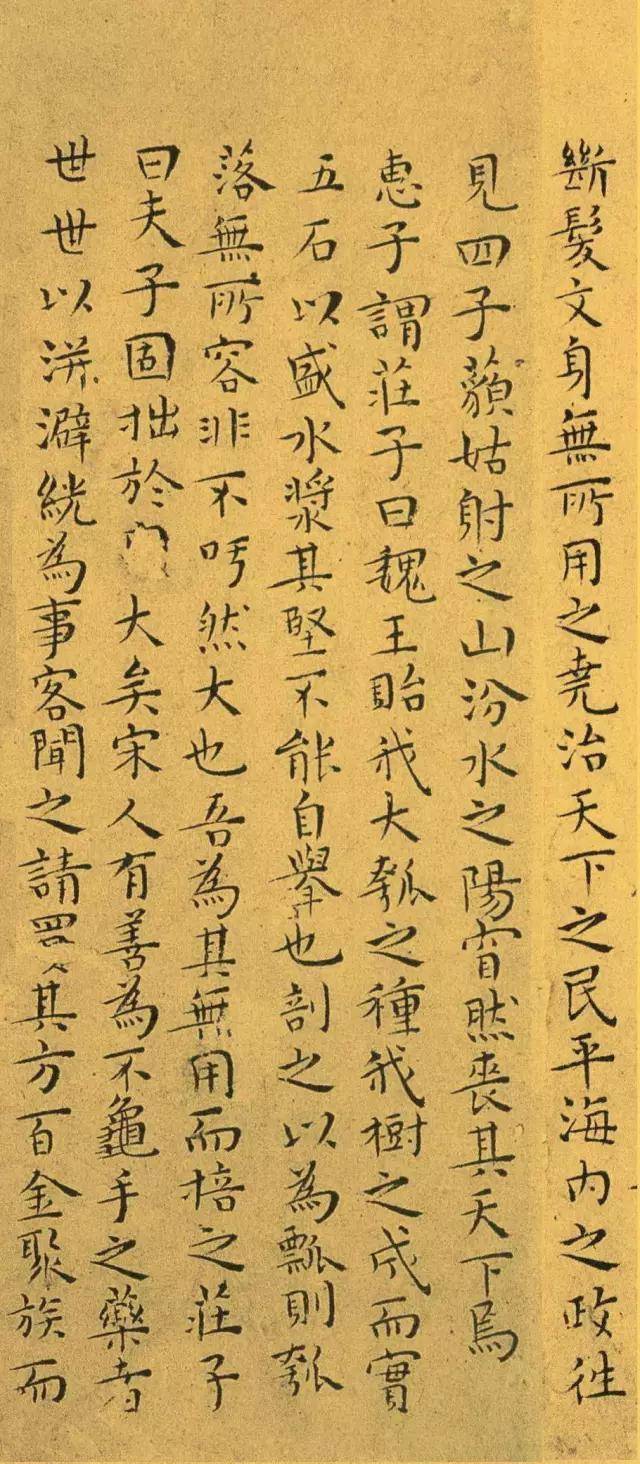 斷髮文身無所用之堯治天下之民平海内之政往
見四子藐姑射之山汾水之陽窅然喪其天下焉
惠子謂莊子曰魏王貽我大瓠之種我樹之成而實
五石以盛水漿其堅不能自舉也剖之以為瓢則瓠
落無所容非不呺然大也吾為其無用而掊之莊子
曰夫子固拙於大矣宋人有善為不龜手之藥者
世世以洴澼絖為事客聞之請買其方百金聚族而